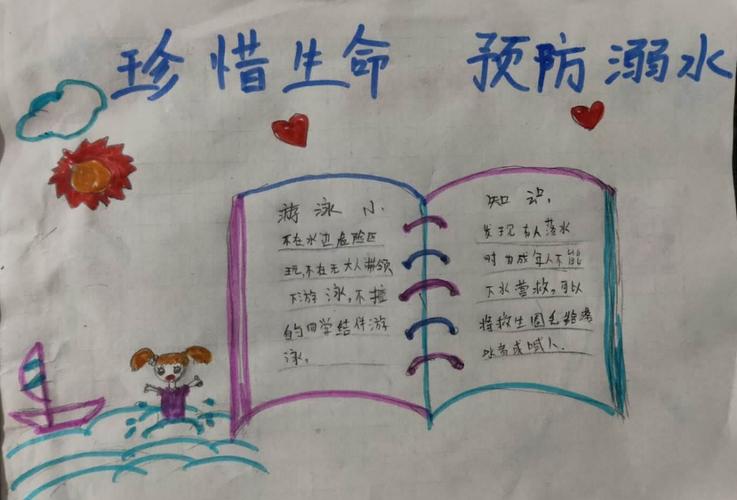 珍惜生命 预防溺水
游泳小
不在水边危险区
玩,不在无大人带领
下游泳,不擅
的同学结伴游
泳。
知识。
发现有人落水
时 成年人不能
下水营救,可以
将救生圈
或喊人.